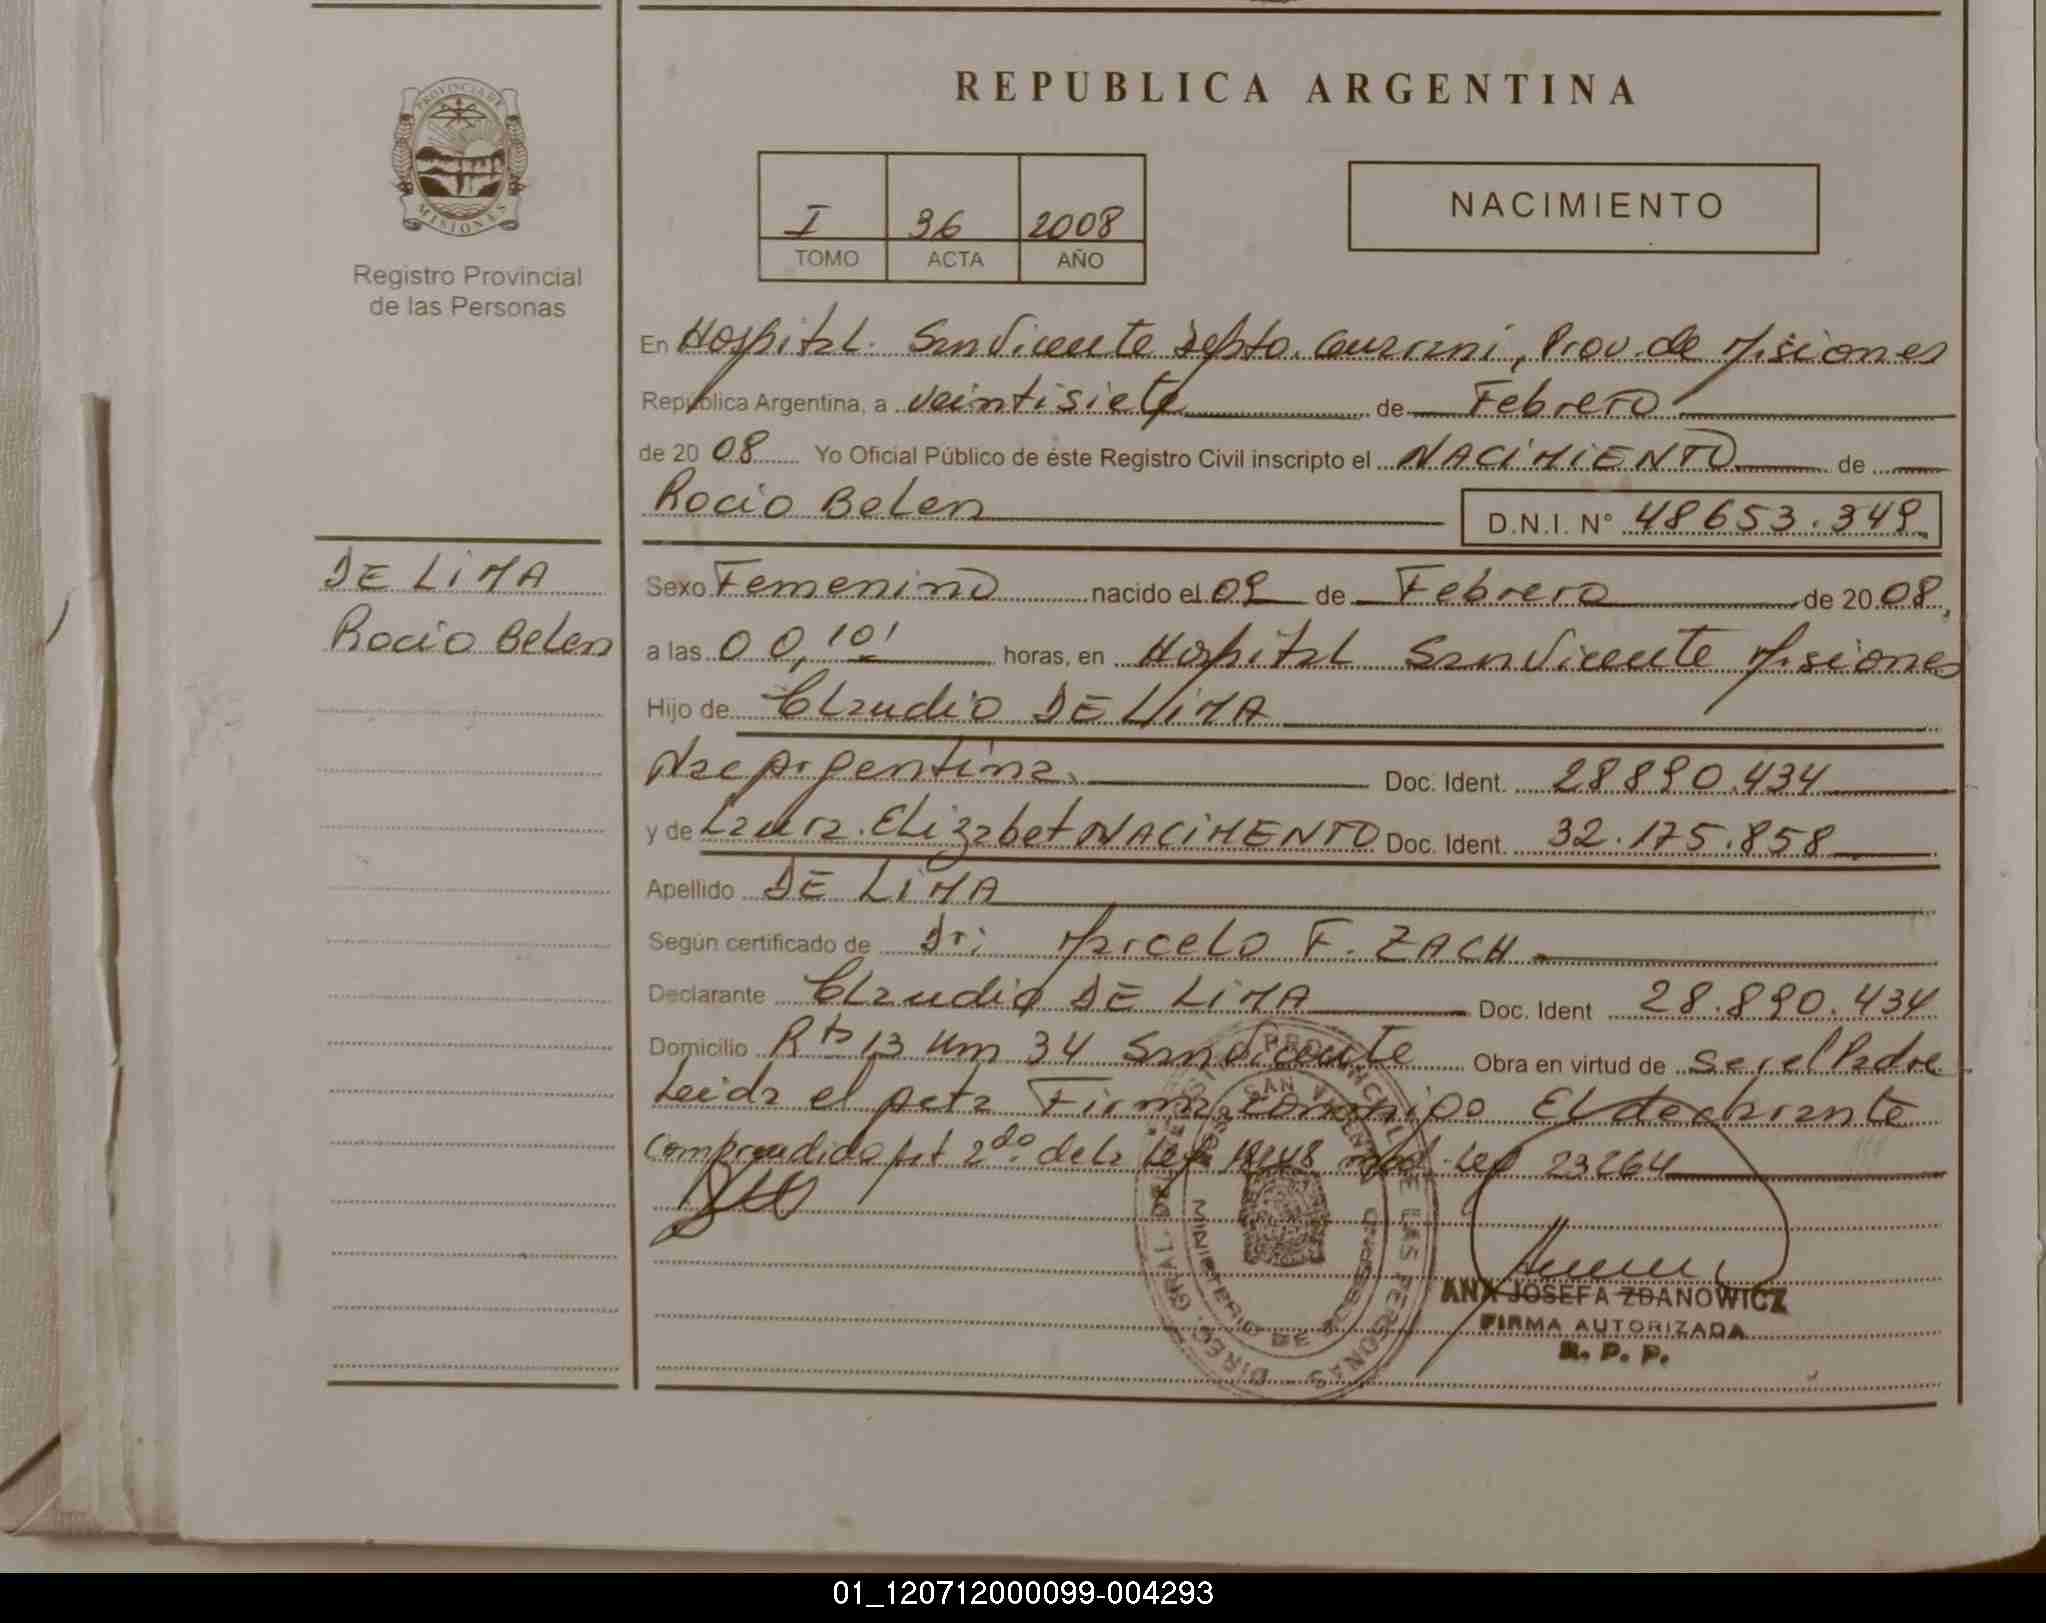 REPUBLICA ARGENTINA
PROVINCIA DE
MISIONES
Registro Provincial
de las Personas
I 36 2008
TOMO ACTA AÑO
NACIMIENTO
En Hospital. San Vicente Depto. Guarani, Prov. de Misiones
República Argentina, a veintisiete de Febrero
de 2008 Yo Oficial Público de éste Registro Civil inscripto el NACIMIENTO de
Rocio Belen D.N.I. N° 48653.349
DE LIMA
Rocio Belen
Sexo Femenino nacido el 09 de Febrero de 2008,
a las 00,10' horas, en Hospital San Vicente Misiones
Hijo de Claudio DE LIMA
Nac Argentina. Doc. Ident. 28890.434
y de Laura Elizabet NACIMENTO Doc. Ident. 32.175.858
Apellido DE LIMA
Según certificado de Dr: Marcelo F. ZACH
Declarante Claudio DE LIMA Doc. Ident 28.890.434
Domicilio Rta 13 Km 34 San Vicente Obra en virtud de ser el Padre
Leida el acta Firma conmigo El declarante
Comprendido Art 2do. de la Ley mod. Ley 23264
ANA JOSEFA ZDANOWICZ
FIRMA AUTORIZADA
R. P. P.
SAN VICENTE
MINISTERIO DE
DIREC. GRAL. DE LAS PERSONAS
01_120712000099-004293